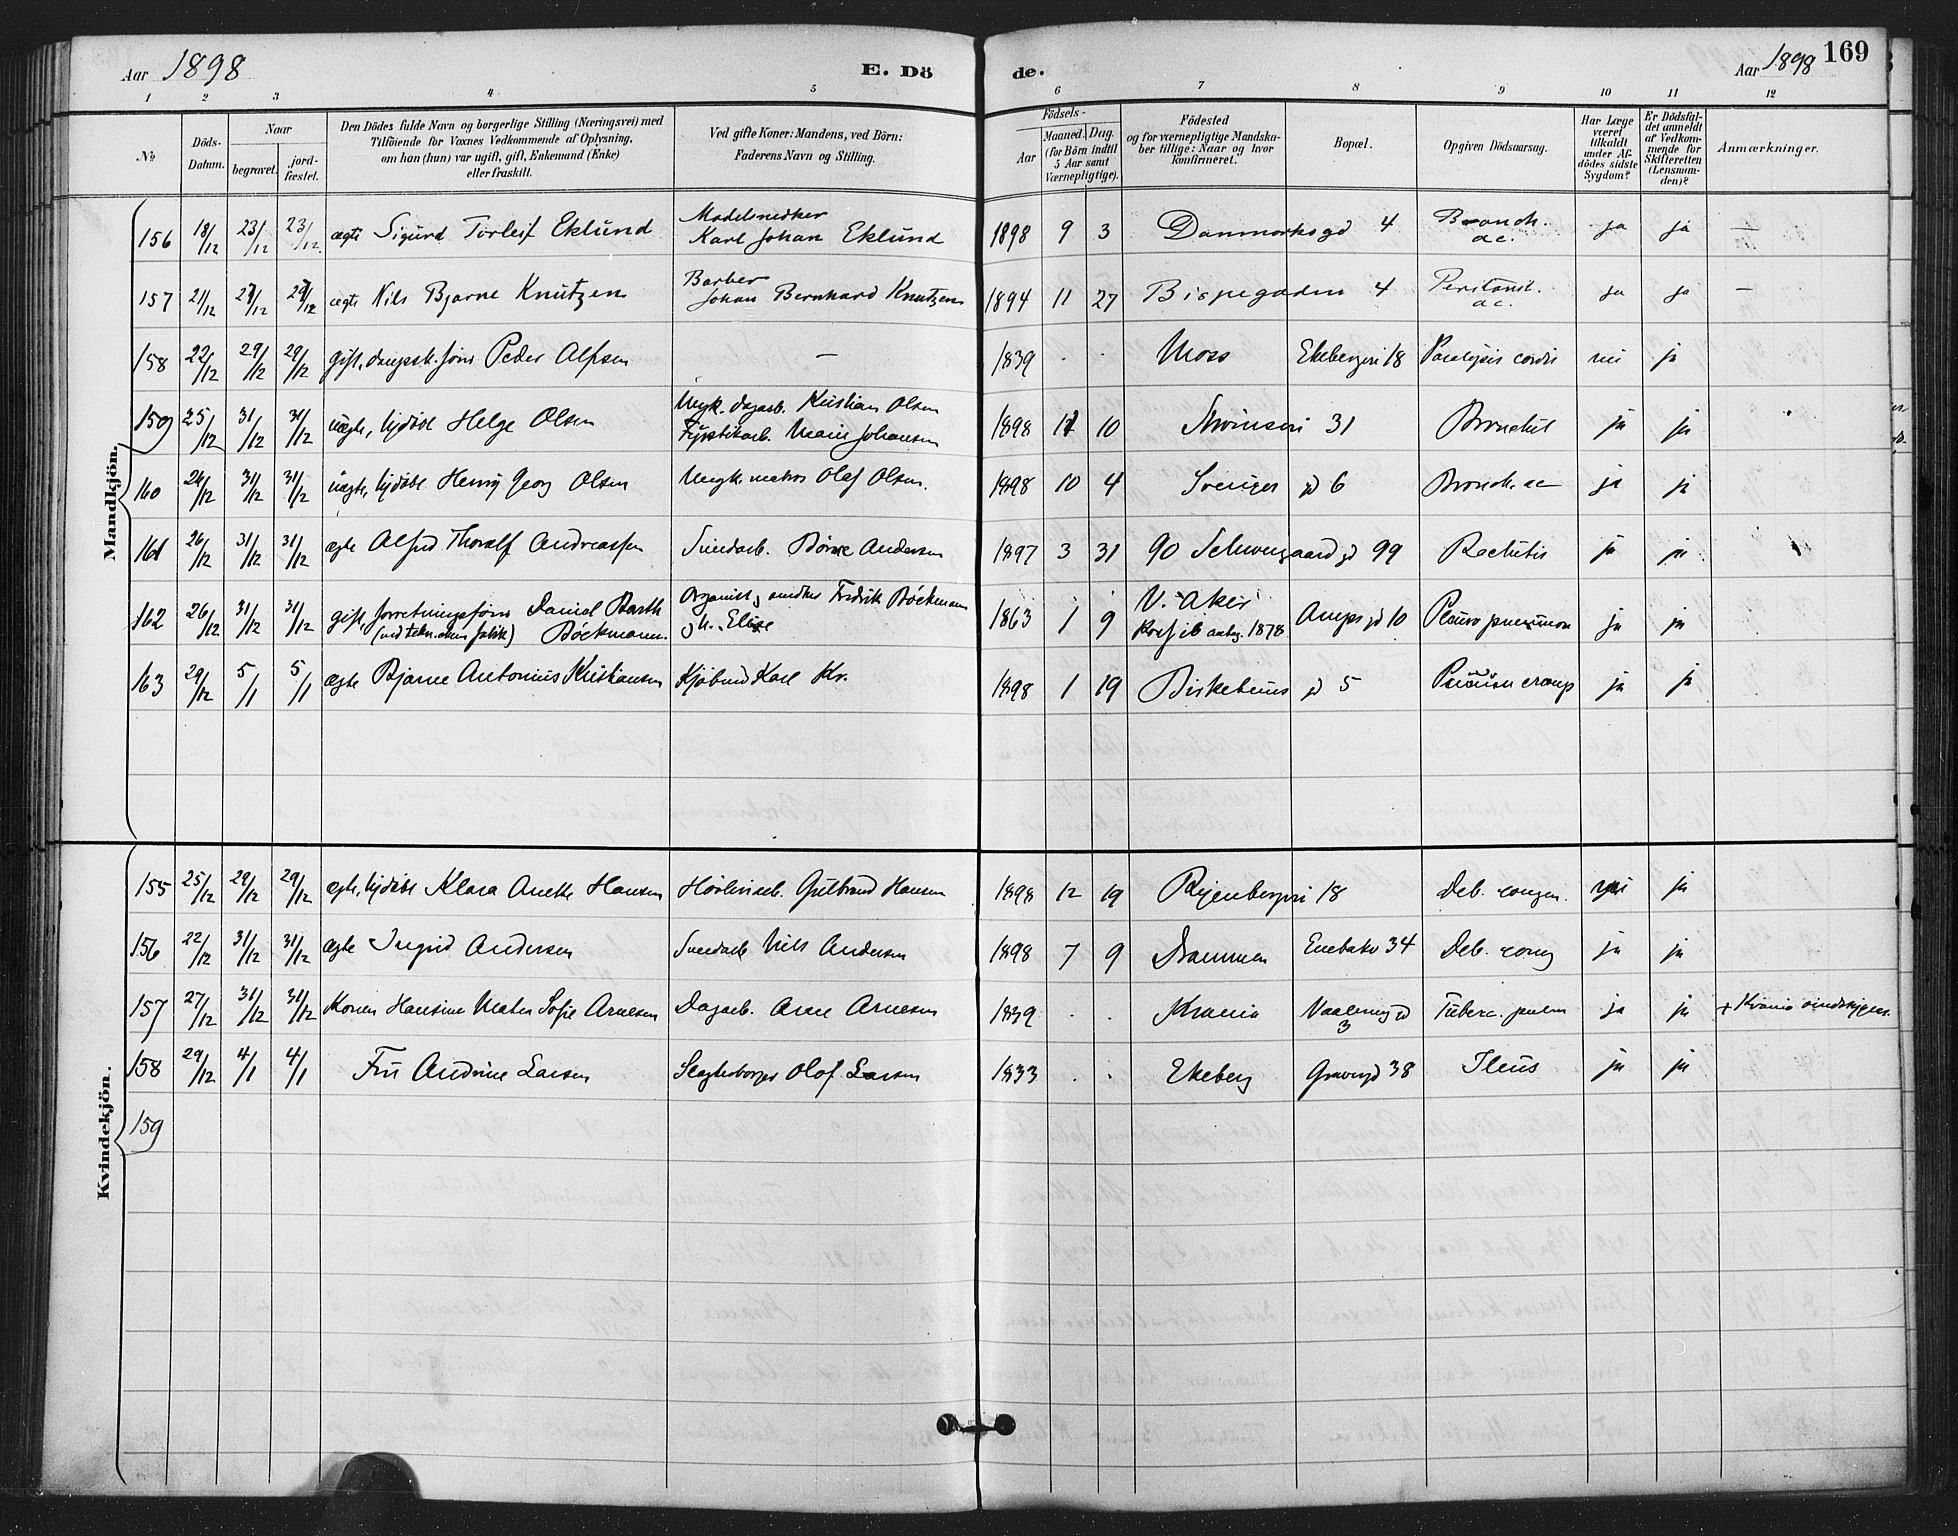 Aar 1898
E. Dö
de.
Aar 1898
169
1 2 3 4 5 6 7 8 9 10 11 12
No
Döds-Datum.
Naar
begravet.
jord-fæstet.
Den Dödes fulde Navn og borgerlige Stilling (Næringsvei) med
Tilföiende for Voxnes Vedkommende af Oplysning,
om han (hun) var ugift, gift, Enkemand (Enke)
eller fraskilt.
Ved gifte Koner: Mandens, ved Börn:
Faderens Navn og Stilling.
Födsels-
Aar
Maaned. Dag.
(for Börn indtil
5 Aar samt
Værnepligtige).
Födested
og for værnepligtige Mandska-
ber tillige: Naar og hvor
konfirmeret.
Bopæl.
Opgiven Dödsaarsag.
Har Læge
været
tilkaldt
under Af-
dödes sidste
Sygdom?
Er Dödsfal-
det anmeldt
af Vedkom-
mende for
Skifteretten
(Lensman-
den)?
Anmærkninger.
Mandkjön.
156 18/12 23/12 23/12 ægte Sigurd Torleif Eklund Modelsnedker Karl Johan Eklund 1898 9 3 Danmarksgd 4 Bronch. ac. ja ja —
157 21/12 27/12 27/12 ægte Nils Bjarne Knutzen Barber Johan Bernhard Knutzen 1894 11 27 Bispegaden 4 Peritonit. ac. ja ja —
158 22/12 29/12 29/12 gift, Peder Alfsen — 1839 . . Moss Ekebergvei 18 Paralysis cordis nei ja
159 25/12 31/12 31/12 uægte, hjdøbt Helge Olsen Ungk. dagarb. Kristian Olsen Marie Johansen 1898 11 10 31 Bronchit ja ja
160 24/12 31/12 31/12 uægte, hjdøbt Henry Georg Olsen Ungk. matros Olaf Olsen. 1898 10 4 Sveriges gd 6 Bronch. ac ja ja
161 26/12 31/12 31/12 ægte Alfred Thoralf Andreassen Børre Andersen 1897 3 31 90 Schweigaard gd 99 Rachitis ja ja
162 26/12 31/12 31/12 gift, forretningsfører Daniel Barth Bøckmann Organist, Fredrik Bøckmann og h. Elise 1863 1 9 V. Aker 1878 gd 10 Pleuro pneumon ja ja
163 29/12 5/1 5/1 ægte Bjarne Antonius Kristiansen Kjøbmd Karl Kr. 1898 1 19 Birkebeins gd 5 Pneumon croup ja ja
Kvindekjön.
155 25/12 29/12 29/12 ægte, hjdøbt Klara Anette Hansen Gulbrand Hansen 1898 12 19 Ryenbergvei 18 Deb. congen. nei ja
156 22/12 31/12 31/12 ægte Ingrid Andersen Nils Andersen 1898 7 9 Drammen Enebakv 34 Deb. cong ja ja
157 27/12 31/12 31/12 Konen Hansine Maten Sofie Arnesen Dagarb. Arne Arnesen 1839 . . Krania Vaalereng gd 3 Tuberc. pulm ja ja + Krania
158 29/12 4/1 4/1 Fru Andrine Larsen Slagterborger Olof Larsen 1833 . . Ekeberg Grøngd 38 Ileus ja ja
159